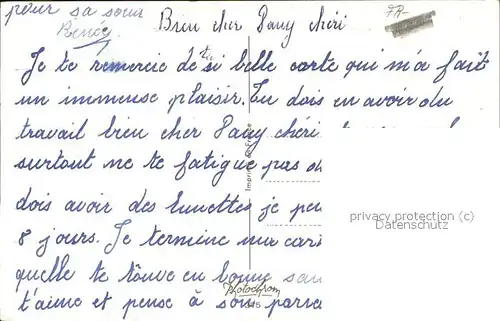 pour sa sœur
Renée
Bien cher Dany chéri
FR-
Je te remercie de ta si belle carte qui m'a fait
un immense plaisir. Tu dois en avoir du
travail bien cher Dany chéri
surtout ne te fatigue pas
dois avoir des lunettes je
8 jours. Je termine ma
quelle te trouve en bonne
t'aime et pense à son
Imprimé en France
privacy protection (c)
Datenschutz
Photochrom